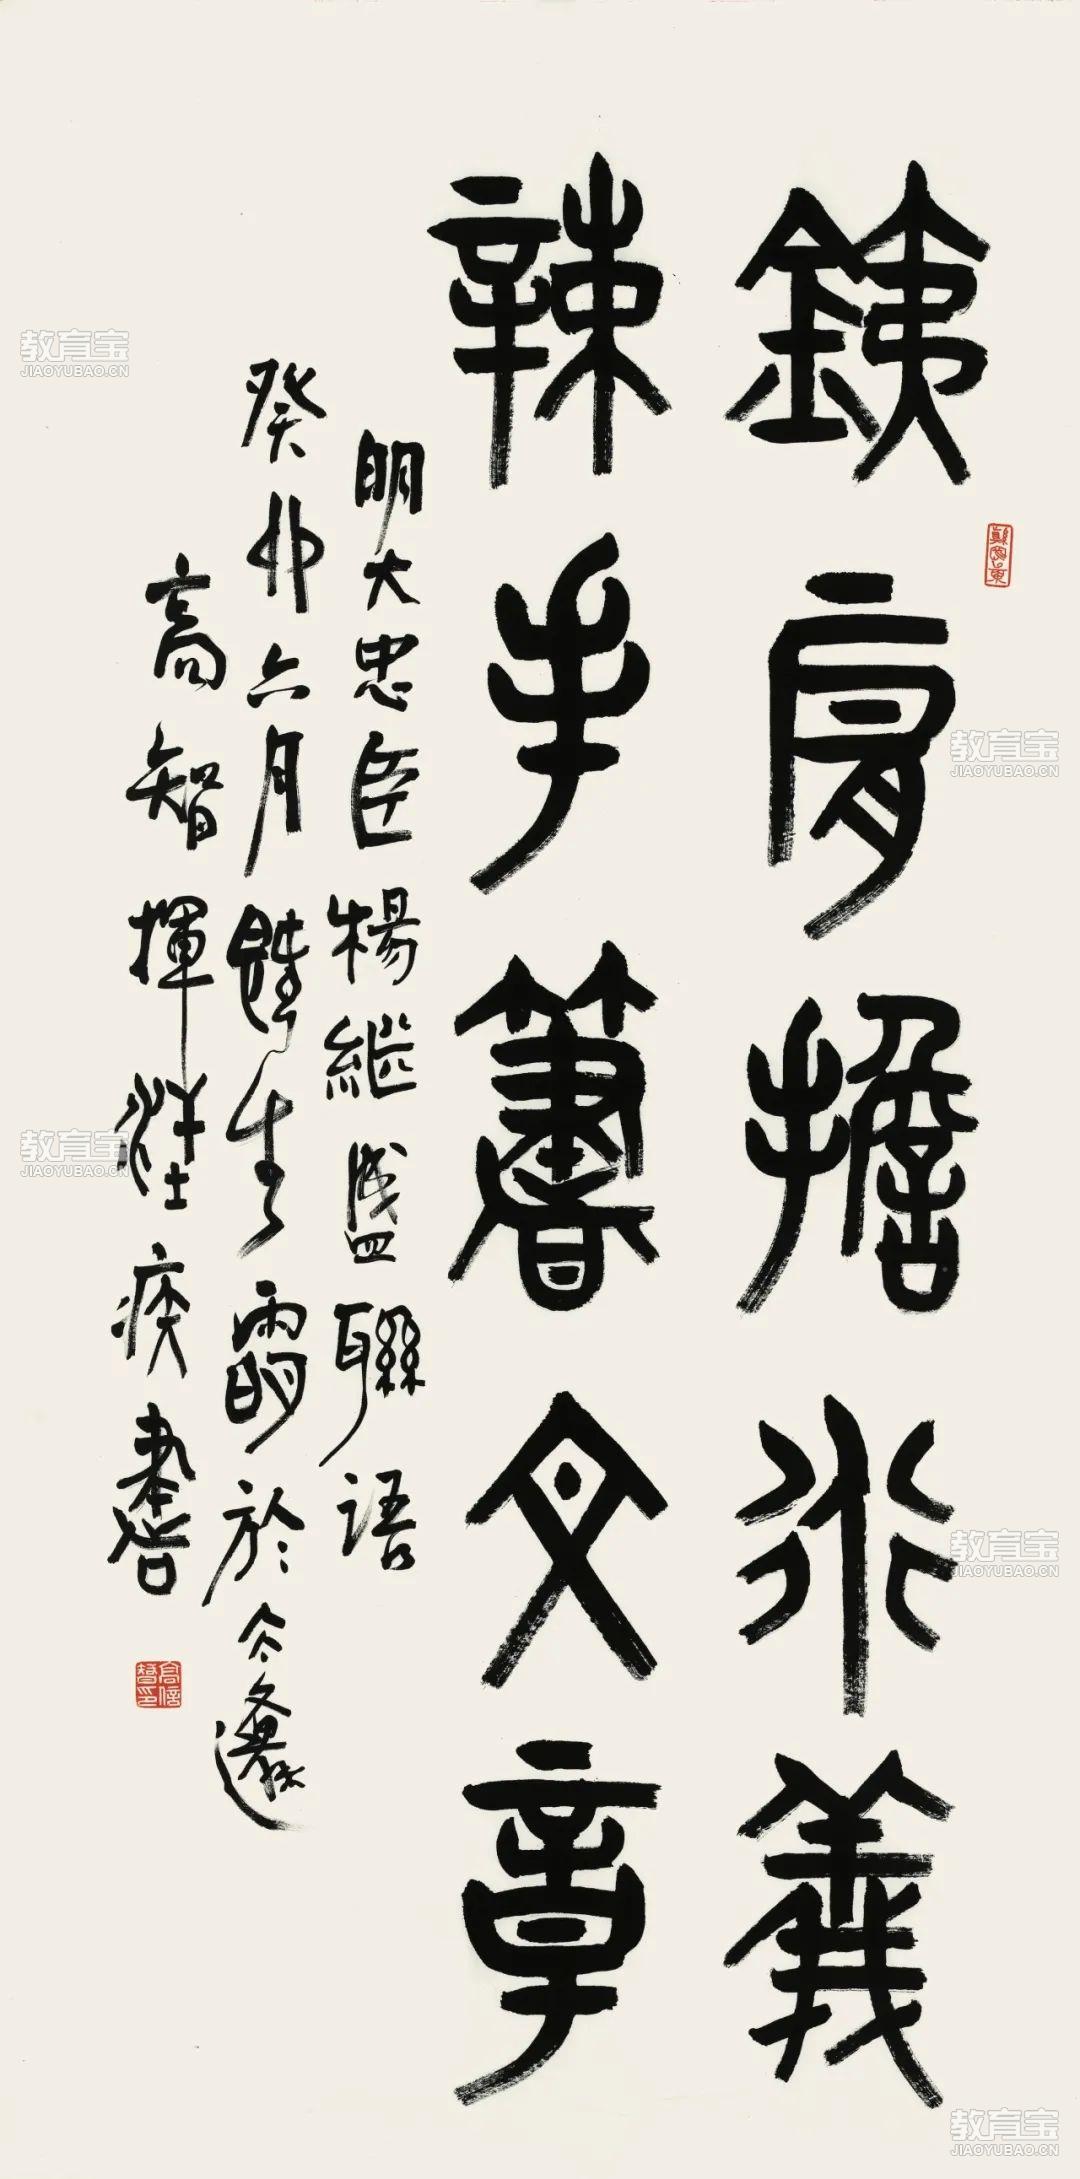 銕肩擔道義
辣手著文章
明大忠臣楊继盛聯語
癸卯六月既生霸於
高智揮
教育宝
JIAOYUBAO.CN
教育宝
JIAOYUBAO.CN
教育宝
JIAOYUBAO.CN
教育宝
JIAOYUBAO.CN
教育宝
JIAOYUBAO.CN